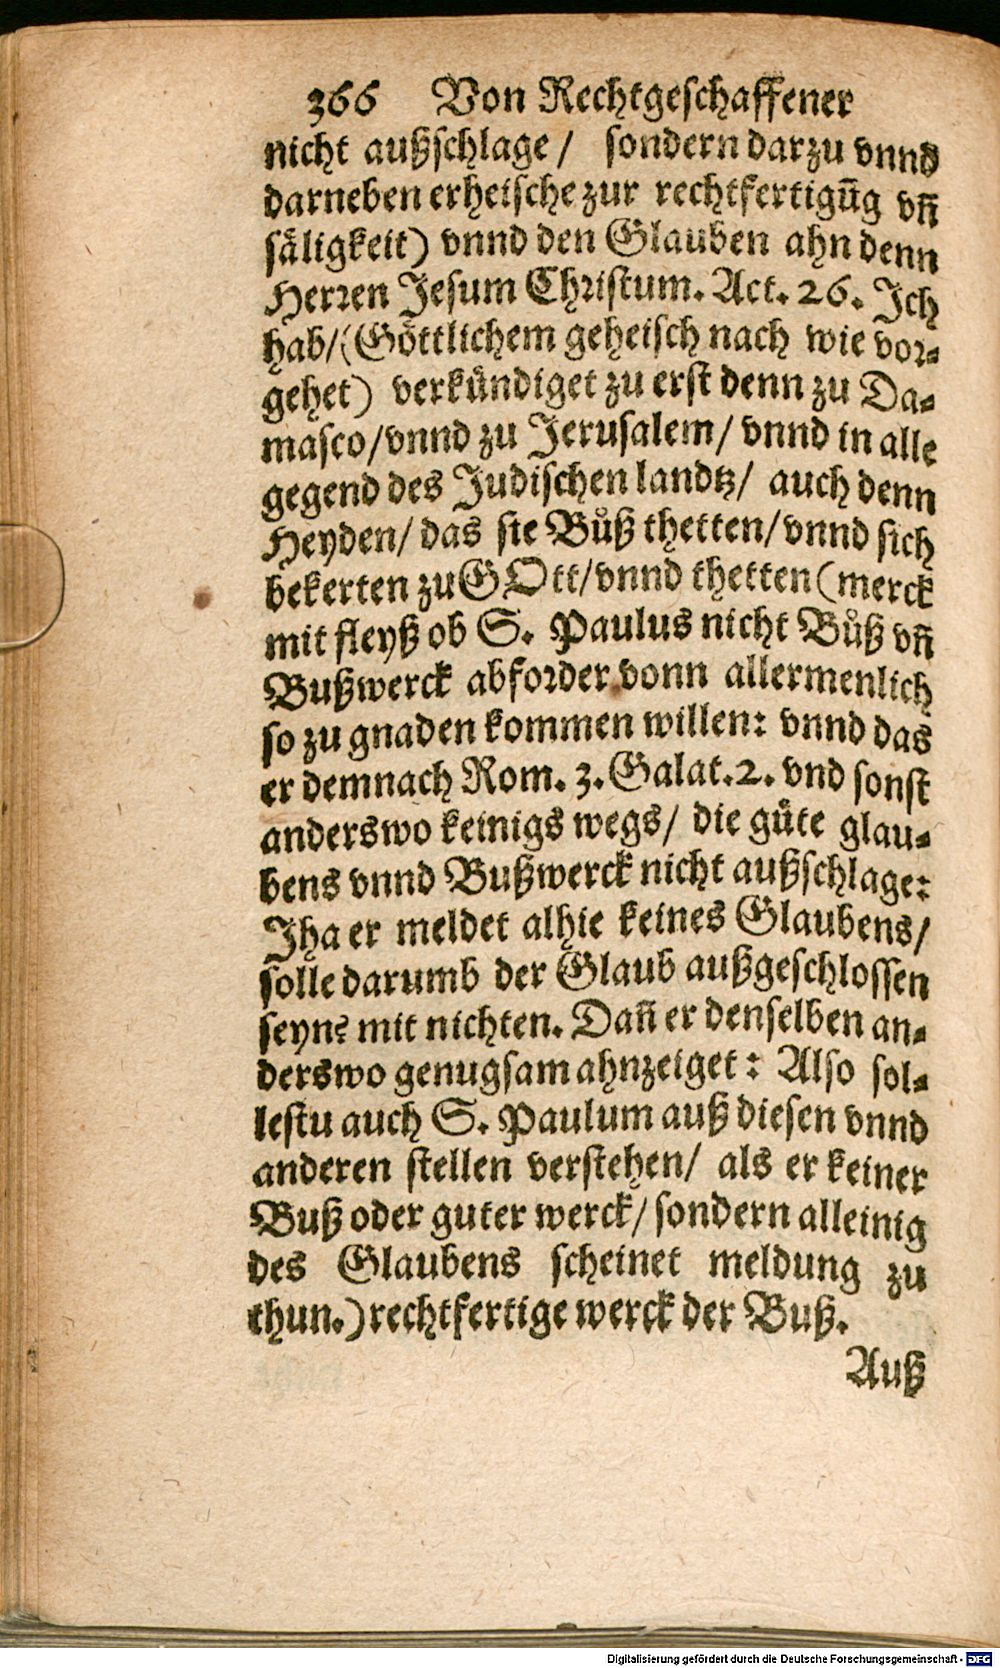 366 Von Rechtgeschaffener
nicht außschlage / sondern darzu vnnd
darneben erheische zur rechtfertigūg vñ
såligkeit) vnnd den Glauben ahn denn
Herren Jesum Christum. Act. 26. Ich
hab/(Göttlichem geheisch nach wie vor-
gehet) verkündiget zu erst denn zu Da-
masco/vnnd zu Jerusalem/ vnnd in alle
gegend des Judischen landtz/ auch denn
Heyden/ das sie Bůß thetten/vnnd sich
bekerten zu GOtt/vnnd thetten (merck
mit fleyß ob S. Paulus nicht Bůß vñ
Bußwerck abforder vonn allermenlich
so zu gnaden kommen willen: vnnd das
er demnach Rom. 3. Galat. 2. vnd sonst
anderswo keinigs wegs/ die güte glau-
bens vnnd Bußwerck nicht außschlage:
Jha er meldet alhie keines Glaubens/
solle darumb der Glaub außgeschlossen
seyn? mit nichten. Dañ er denselben an-
derswo genugsam ahnzeiget: Also sol-
lestu auch S. Paulum auß diesen vnnd
anderen stellen verstehen/ als er keiner
Buß oder guter werck/ sondern alleinig
des Glaubens scheinet meldung zu
thun.) rechtfertige werck der Buß.
Auß
Digitalisierung gefördert durch die Deutsche Forschungsgemeinschaft - DFG